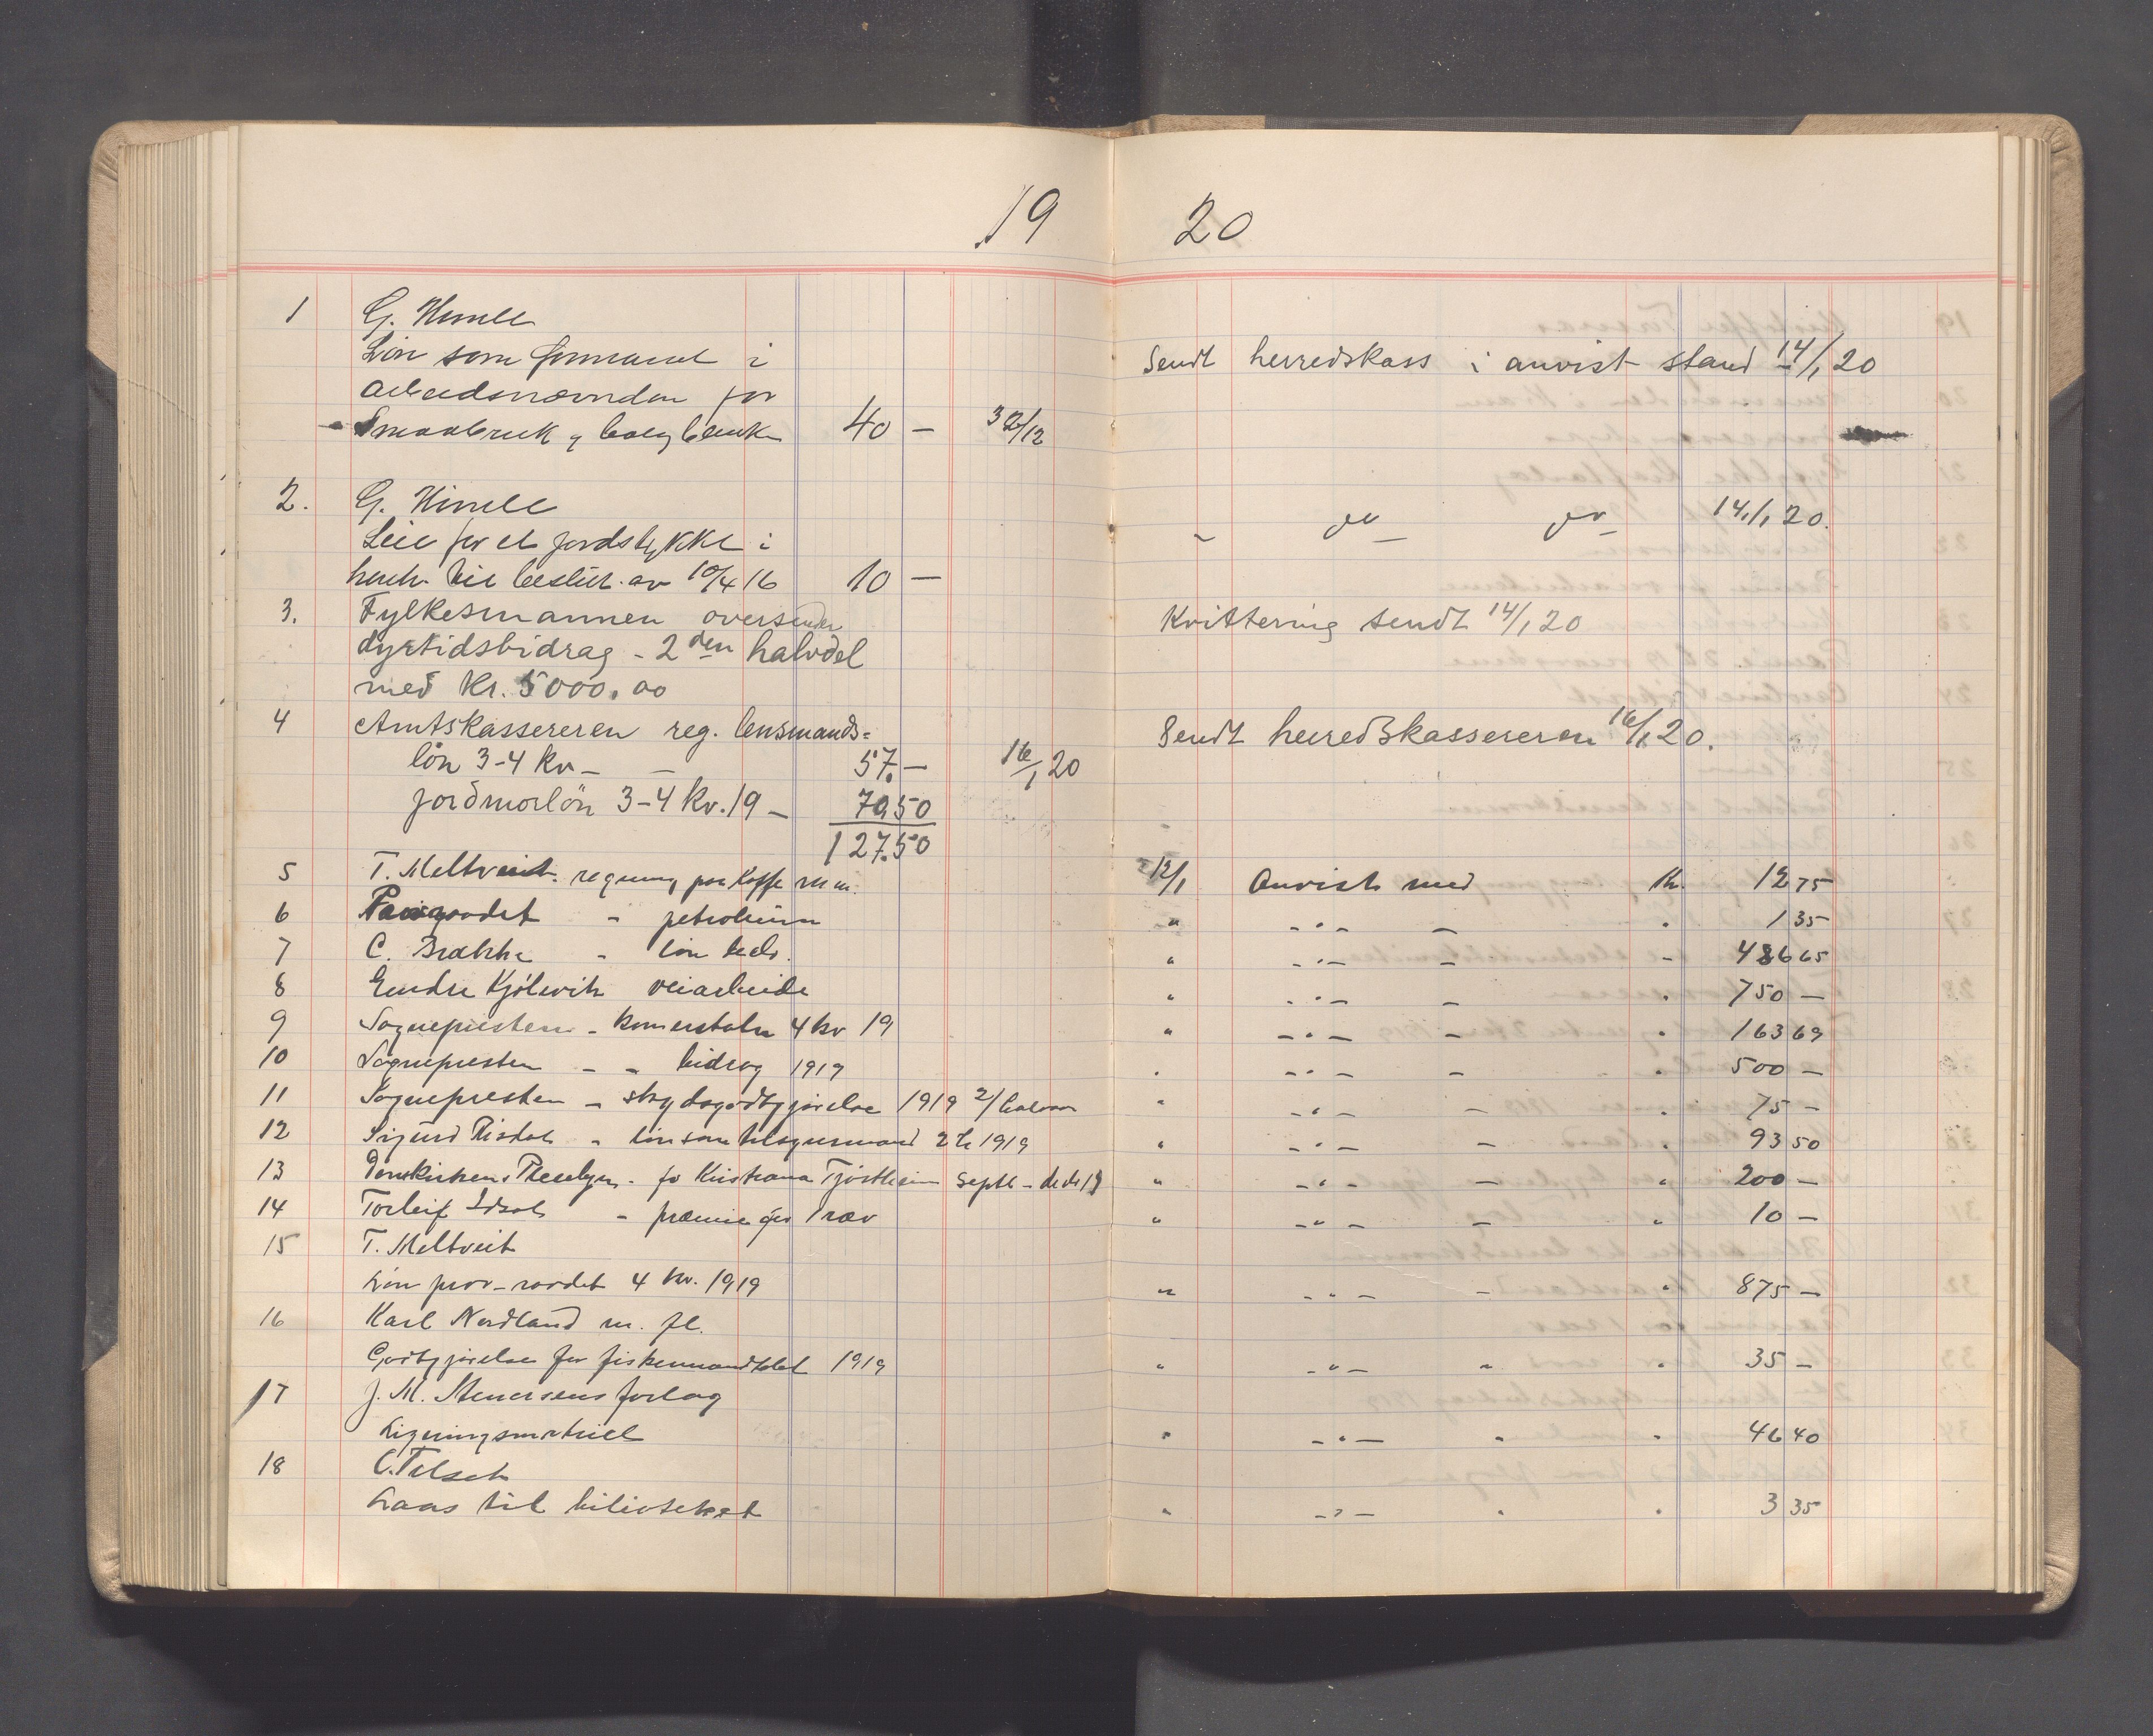 19 20
1 G. Himle
Lön som formand i
arbeidsnævnden for
Smaabruk og boligbanken 40 –
Sendt herredskass i anvist stand 14/1 20
2. G. Himle
Leie for et jordstykke i
henh. til beslut. av 10/4 16 10 –
" do do 14/1 20.
3. Fylkesmannen oversender
dyrtidsbidrag - 2den halvdel
med Kr. 5000.00
Kvittering sendt 14/1 20
4 Amtskassereren reg. lensmands=
lön 3-4 Kv – – 57.– 16/1 20
Sendt herredskassereren 16/1 20.
jordmorlön 3-4 Kv. 19 – 70.50
127.50
5 T. Meltveit. regning paa Kaffe m m. 12/1 Anvist med Kr. 12 75
6 - petroleum " -"- – " 1 35
7 C. Brakke - lön " -"- – - 486 65
8 Endre Kjölevik veiarbeide " -"- – " 750 –
9 Sognepresten - 4 kv 19 " -"- – " 163 69
10 Sognepresten - - bidrag 1919 " -"- – " 500 –
11 Sognepresten - skydsgodtgjørelse 1919 2/halvaar " -"- – " 75 –
12 Sigurd Risdal - lön som tilsynsmand 2 h 1919 " -"- – " 93 50
13 Plesehjem - for Kristiana Tjöstheim Septb - decb 19 " -"- – " 200 –
14 Torleif Idsal - præmie for 1 ræv " -"- – " 10 –
15 T. Meltveit
Lön prov-raadet 4 kv. 1919 " -"- – " 875 –
16 Karl Nordland m. fl.
Godtgjørelse for fiskermandtalet 1919 " -"- " " 35 –
17 J. M. Stenersens forlag
Ligningsmatriel " -"- " " 46 40
18
Laas til biliotekat " -"- " " 3 35